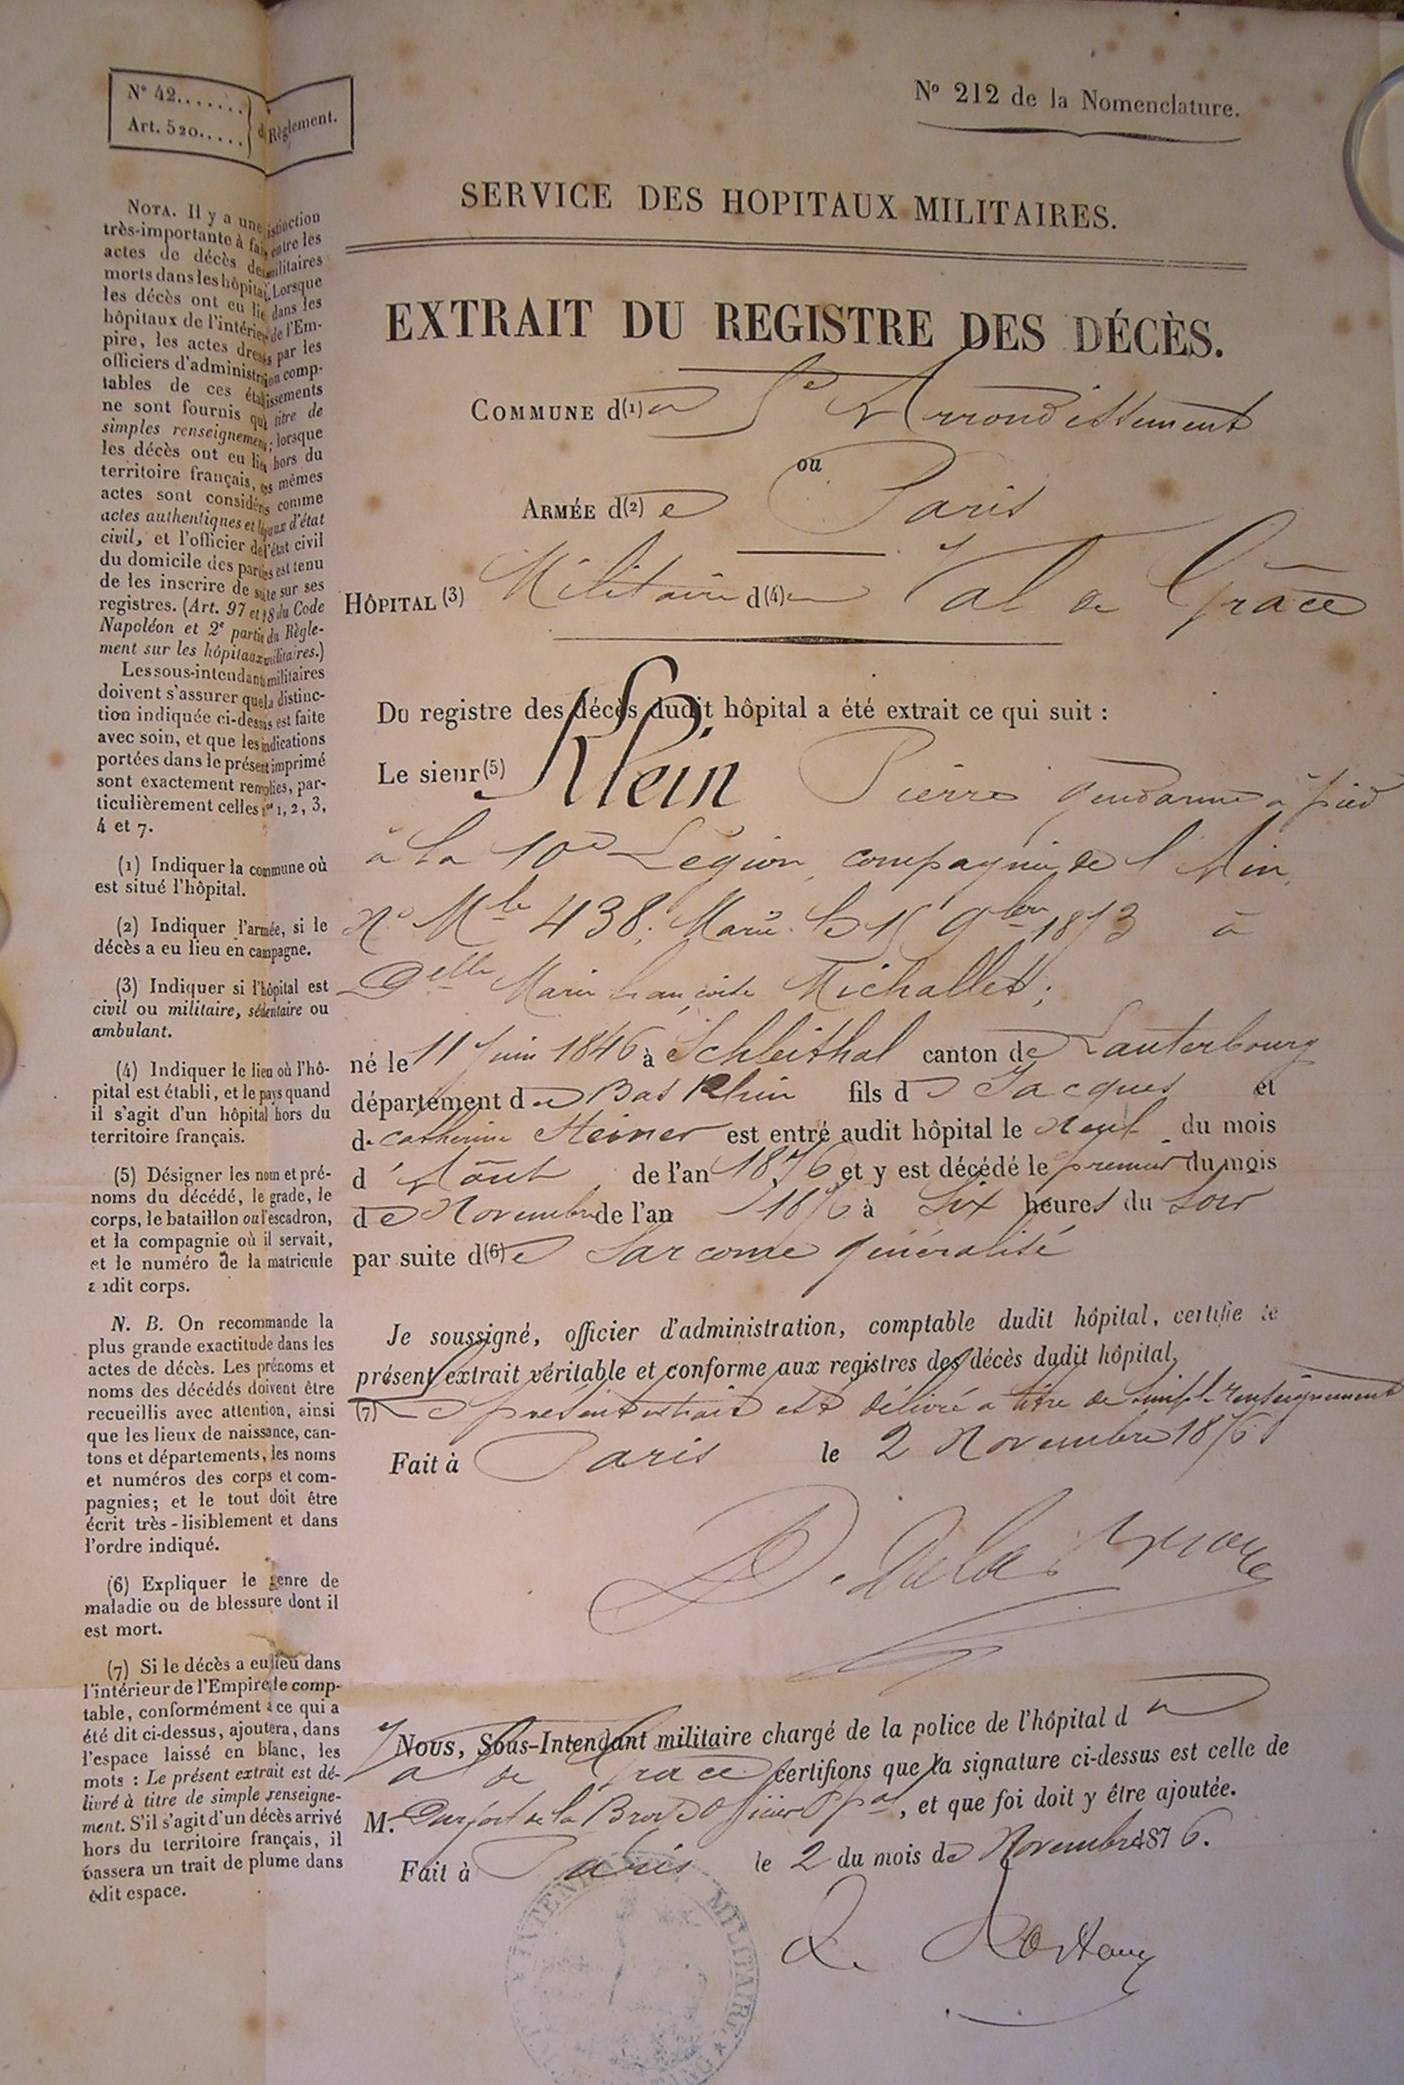 N° 42.......
Art. 520.....
du Règlement.
N° 212 de la Nomenclature.
SERVICE DES HOPITAUX MILITAIRES.
EXTRAIT DU REGISTRE DES DÉCÈS.
COMMUNE d(1)u 5e Arrondissement
ou
ARMÉE d(2)e Paris
HÔPITAL (3) Militaire d(4)u Val de Grâce
Du registre des décès dudit hôpital a été extrait ce qui suit :
Le sieur (5) Klein Pierre gendarme à pied
à la 10e Légion, compagnie de l'Ain,
N° Mle 438; Marié le 15 9bre 1873 à
Delle Marie françoise Michallet;
né le 11 Juin 1846 à Schleithal canton de Lauterbourg
département du Bas Rhin fils de Jacques et
de Catherine Steiner est entré audit hôpital le Neuf du mois
d'Août de l'an 1876 et y est décédé le premier du mois
de Novembre de l'an 1876 à Six heures du Soir
par suite d(6)e Sarcome généralisé
Je soussigné, officier d'administration, comptable dudit hôpital, certifie le
présent extrait véritable et conforme aux registres des décès dudit hôpital.
(7) Le présent extrait est délivré à titre de simple renseignement
Fait à Paris le 2 Novembre 1876
Nous, Sous-Intendant militaire chargé de la police de l'hôpital du
Val de Grace certifions que la signature ci-dessus est celle de
M. Durfort de la Officier Ppal, et que foi doit y être ajoutée.
Fait à Paris le 2 du mois de Novembre 1876.
INTENDANCE MILITAIRE
NOTA. Il y a une distinction
très-importante à faire entre les
actes de décès des militaires
morts dans les hôpitaux. Lorsque
les décès ont eu lieu dans les
hôpitaux de l'intérieur de l'Em-
pire, les actes dressés par les
officiers d'administration comp-
tables de ces établissements
ne sont fournis qu'à titre de
simples renseignements; lorsque
les décès ont eu lieu hors du
territoire français, ces mêmes
actes sont considérés comme
actes authentiques et légaux d'état
civil, et l'officier de l'état civil
du domicile des parties est tenu
de les inscrire de suite sur ses
registres. (Art. 97 et 98 du Code
Napoléon et 2e partie du Règle-
ment sur les hôpitaux militaires.)
Les sous-intendants militaires
doivent s'assurer que la distinc-
tion indiquée ci-dessus est faite
avec soin, et que les indications
portées dans le présent imprimé
sont exactement remplies, par-
ticulièrement celles nos 1, 2, 3,
4 et 7.
(1) Indiquer la commune où
est situé l'hôpital.
(2) Indiquer l'armée, si le
décès a eu lieu en campagne.
(3) Indiquer si l'hôpital est
civil ou militaire, sédentaire ou
ambulant.
(4) Indiquer le lieu où l'hô-
pital est établi, et le pays quand
il s'agit d'un hôpital hors du
territoire français.
(5) Désigner les nom et pré-
noms du décédé, le grade, le
corps, le bataillon ou l'escadron,
et la compagnie où il servait,
et le numéro de la matricule
audit corps.
N. B. On recommande la
plus grande exactitude dans les
actes de décès. Les prénoms et
noms des décédés doivent être
recueillis avec attention, ainsi
que les lieux de naissance, can-
tons et départements, les noms
et numéros des corps et com-
pagnies; et le tout doit être
écrit très-lisiblement et dans
l'ordre indiqué.
(6) Expliquer le genre de
maladie ou de blessure dont il
est mort.
(7) Si le décès a eu lieu dans
l'intérieur de l'Empire, le comp-
table, conformément à ce qui a
été dit ci-dessus, ajoutera, dans
l'espace laissé en blanc, les
mots : Le présent extrait est dé-
livré à titre de simple renseigne-
ment. S'il s'agit d'un décès arrivé
hors du territoire français, il
passera un trait de plume dans
ledit espace.